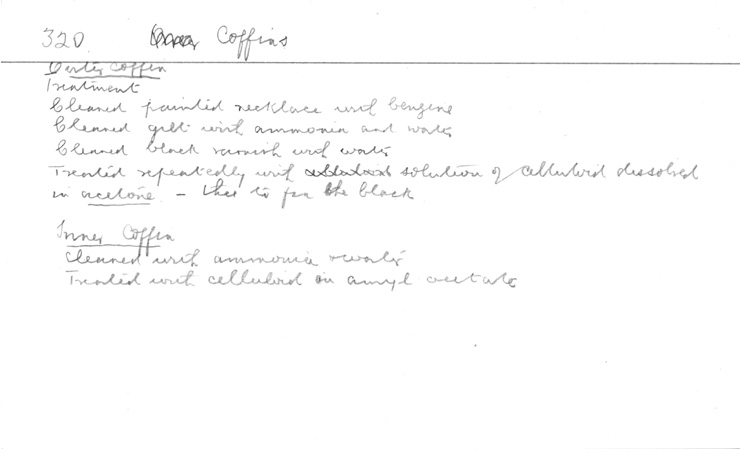 320 Coffins
Outer Coffin
Treatment
Cleaned painted necklace with benzene
Cleaned gilt with ammonia and water
Cleaned black varnish with water
Treated repeatedly with solution of celluloid dissolved
in acetone - this to fix the black
Inner Coffin
Cleaned with ammonia & water
Treated with celluloid in amyl acetate